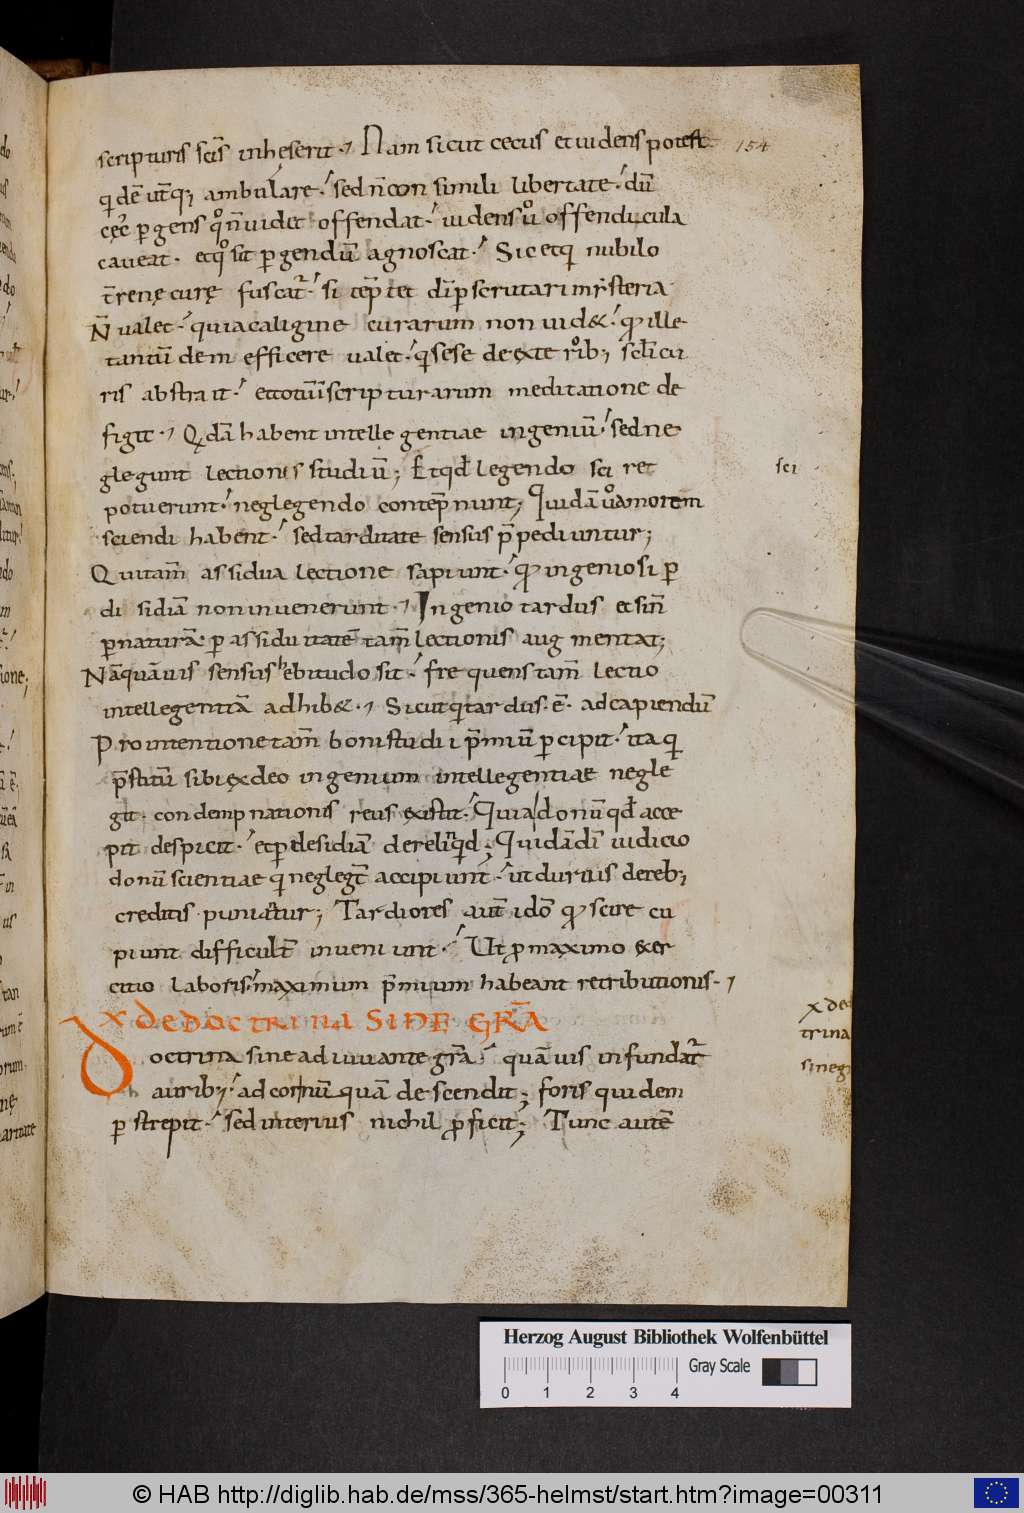 scripturis scīs inhęserit · Nam sicut cecus et uidens potest
154
q̇dē utq̄; ambulare · sed ñ consimili libertate · dū
cęc᾿ ꝑgens qͦ ñ uidet offendat · uidens ů offendicula
caueat · et qͦ sit ꝑgendū agnoscat · Sic et qi nubilo
t̄renę curę fuscat̄ · si tēptet dī ꝑscrutari misteria
Ñ ualet · quia caligine curarum non uid& · qͥ ille
tantūdem efficere ualet · qi sese de exteriorib; sc̄li cu
ris abstrait · et totū ī scripturarum meditatione de
figit · Qͥdā habent intellegentiae ingeniū · sed ne
glegunt lectionis studiū; Et qͥd legendo sci ret
sci
potuerunt · neglegendo contēpnunt; Quidā ů amorem
sciendi habent · sed tarditate sensus p̄pediuntur;
Qui tam̄ assidua lectione sapiunt · qͥ ingeniosi ꝑ
disidiā non inuenerunt · Ingenio tardus etsi ñ
ꝑ naturā · ꝑ assiduitatē tam̄ lectionis augmentat;
Nā quāuis sensus hebitudo sit · frequens tam̄ lectio
intellegentiā adhib& · Sicut qi tardus · ē · ad capiendū
Pro intentione tam̄ boni studii p̄miū ꝑcipit · ita qi
p̄stitū sibi ex deo ingenium intellegentiae negle
git · condempnationis reus existit · Quia donū qd̄ acce
pit despicit · et ꝑ desidiā derelinqͥd; Quidā dī iudicio
donū scientiae qͥ neglegt̄ accipiunt · ut durius dereb;
creditis puniatur; Tardiores aut̄ idō qͥ scire cu
piunt difficult̄ inueniunt · Ut ꝓ maximo exer
citio laboris · maximum p̄mium habeant retributionis ·
X DE DOCTRINA SINE GRĀ
X de
trina
sineg
Doctrina sine adiuuante gr̄a · quāuis infundat̄
aurib; · ad cor nūquā descendit; foris quidem
ꝑstrepit · sed interius nichil ꝓficit; Tunc autē
Herzog August Bibliothek Wolfenbüttel
Gray Scale
0 1 2 3 4
© HAB http://diglib.hab.de/mss/365-helmst/start.htm?image=00311